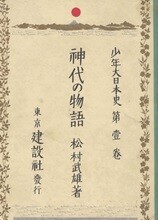 少年大日本史 第壹卷
神代の物語
松村武雄著
東京 建設社 發行